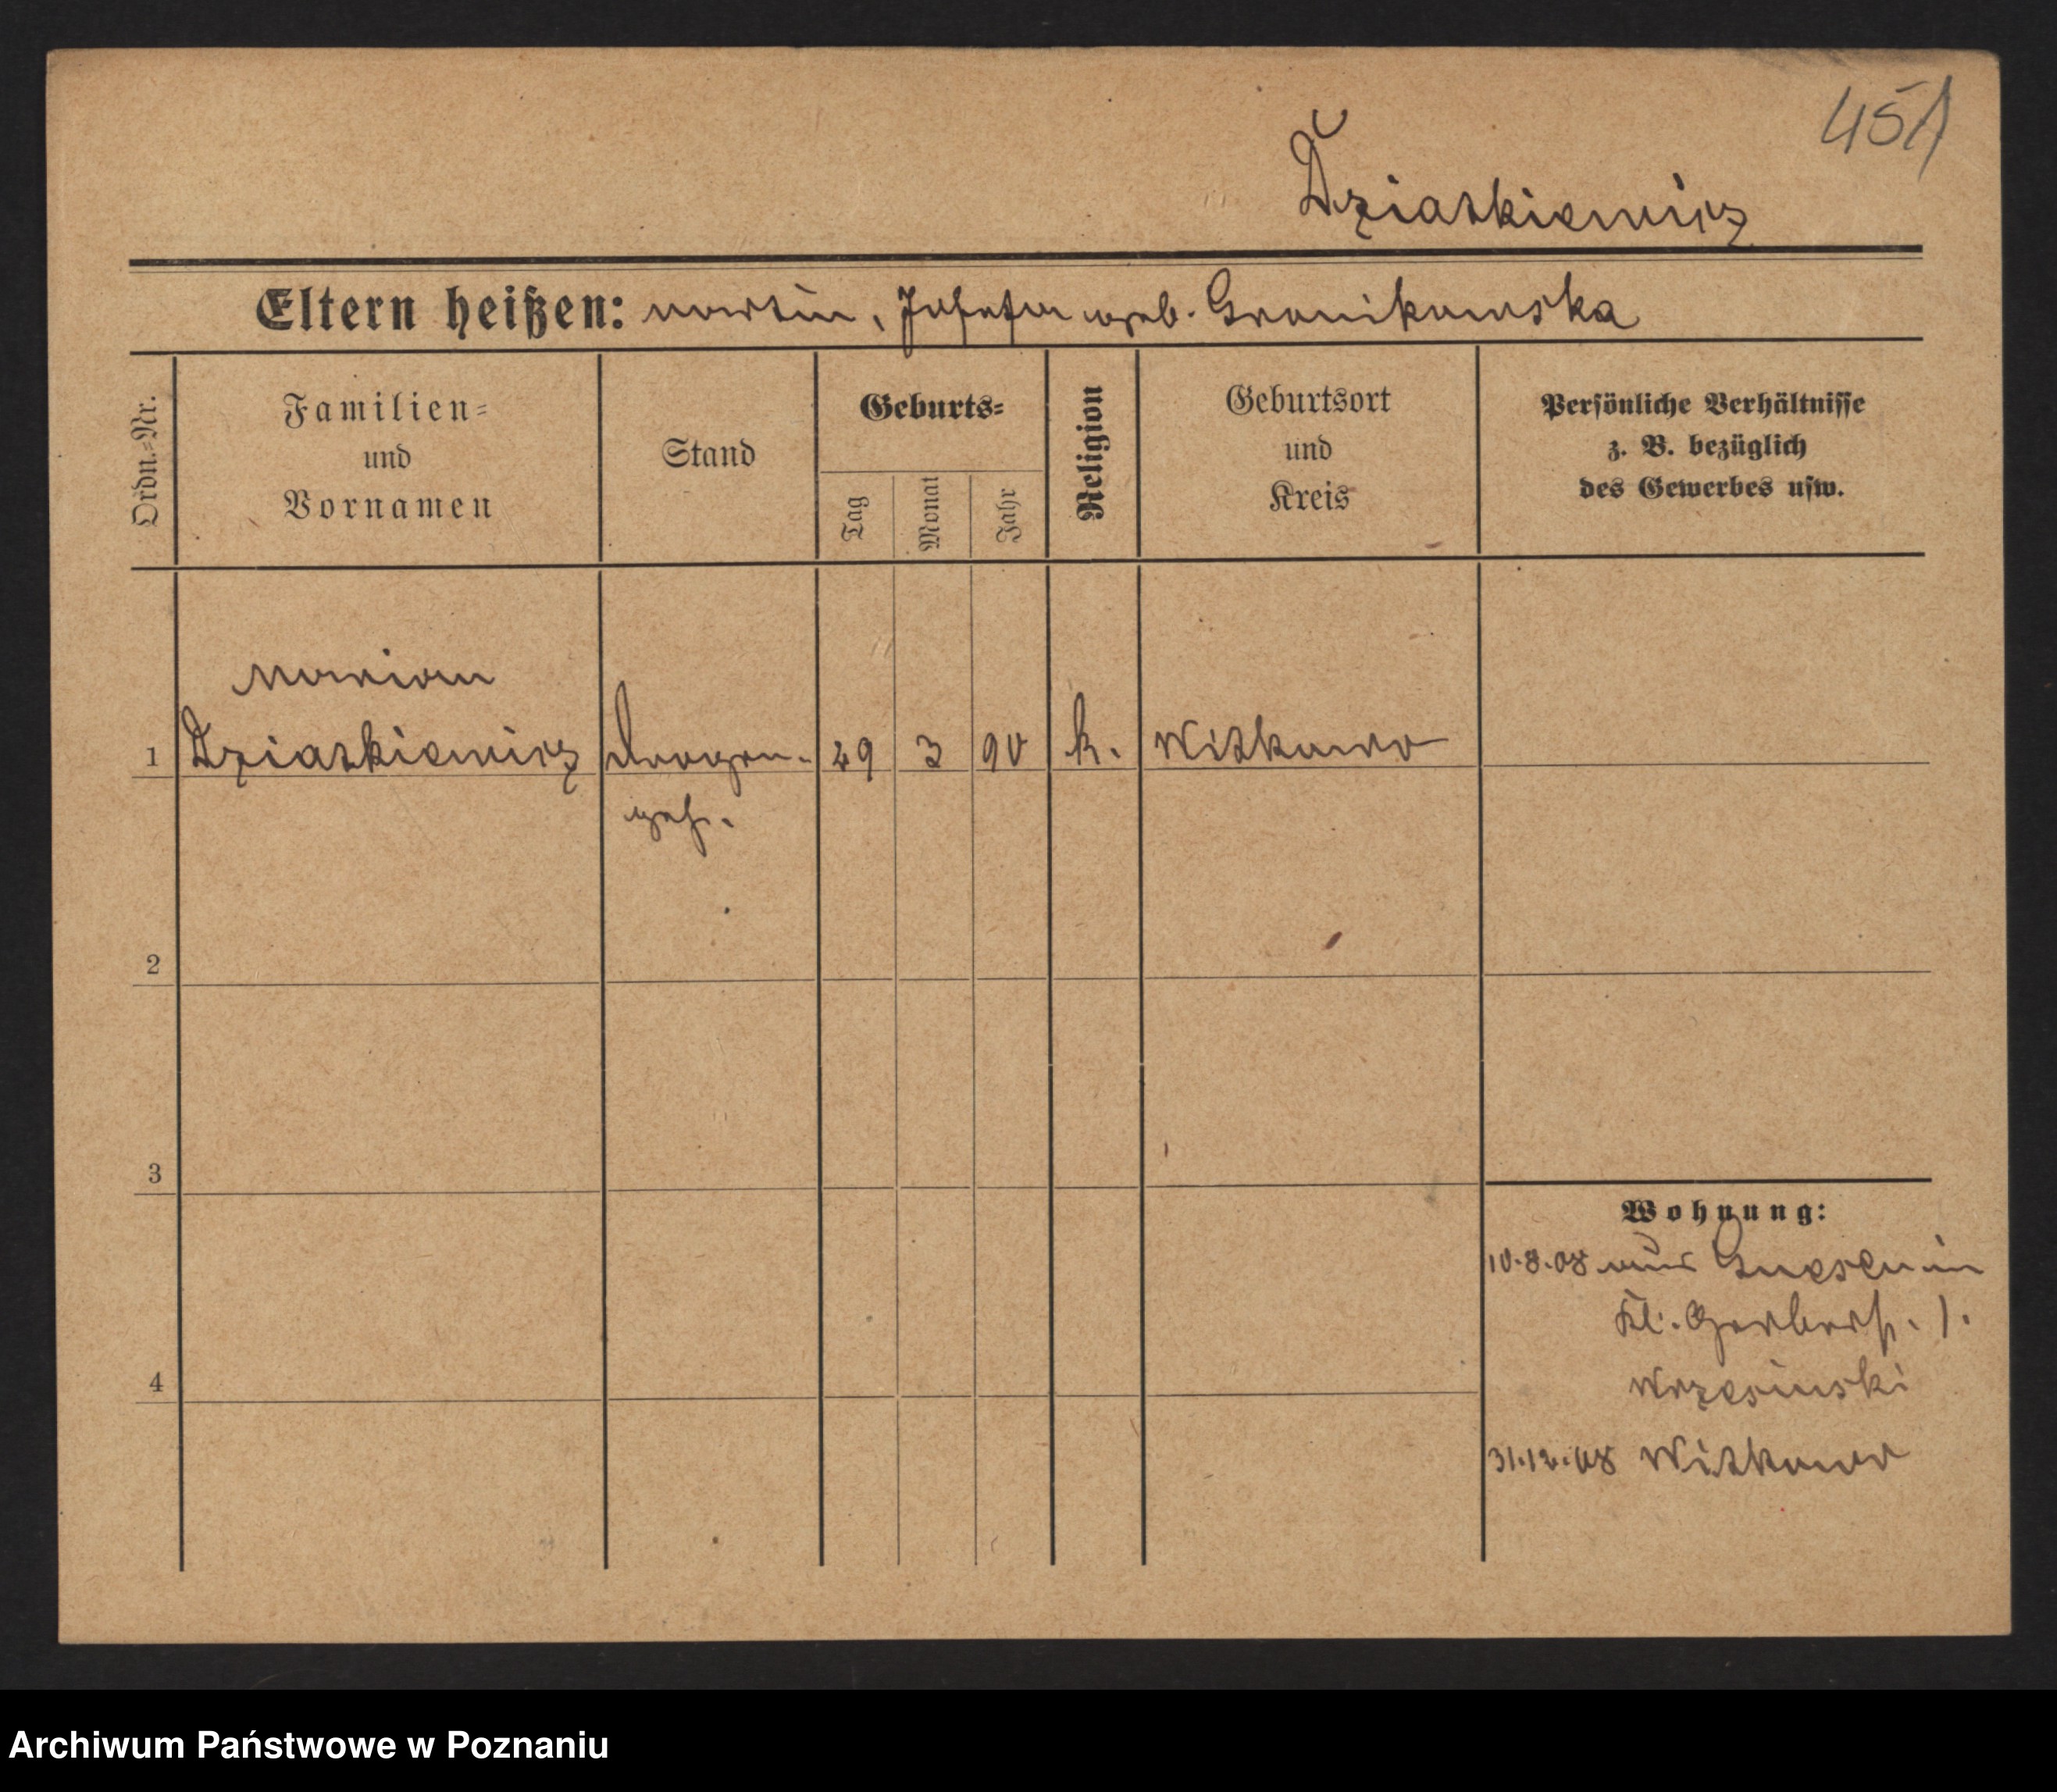 451
Dziatkiewicz
Eltern heißen: Martin, Josefa geb. Gronikowska
Ordn.-Nr.
Familien-
und
Vornamen
Stand
Geburts-
Tag
Monat
Jahr
Religion
Geburtsort
und
Kreis
Persönliche Verhältnisse
z. B. bezüglich
des Gewerbes usw.
Marian
1 Dziatkiewicz Drogen- 29 3 90 k. Witkowo
geh.
2
3
4
Wohnung:
10.8.08 aus Gnesen in
Kl. Gerberstr. 1.
Wrzesinski
31.12.08 Witkowo
Archiwum Państwowe w Poznaniu